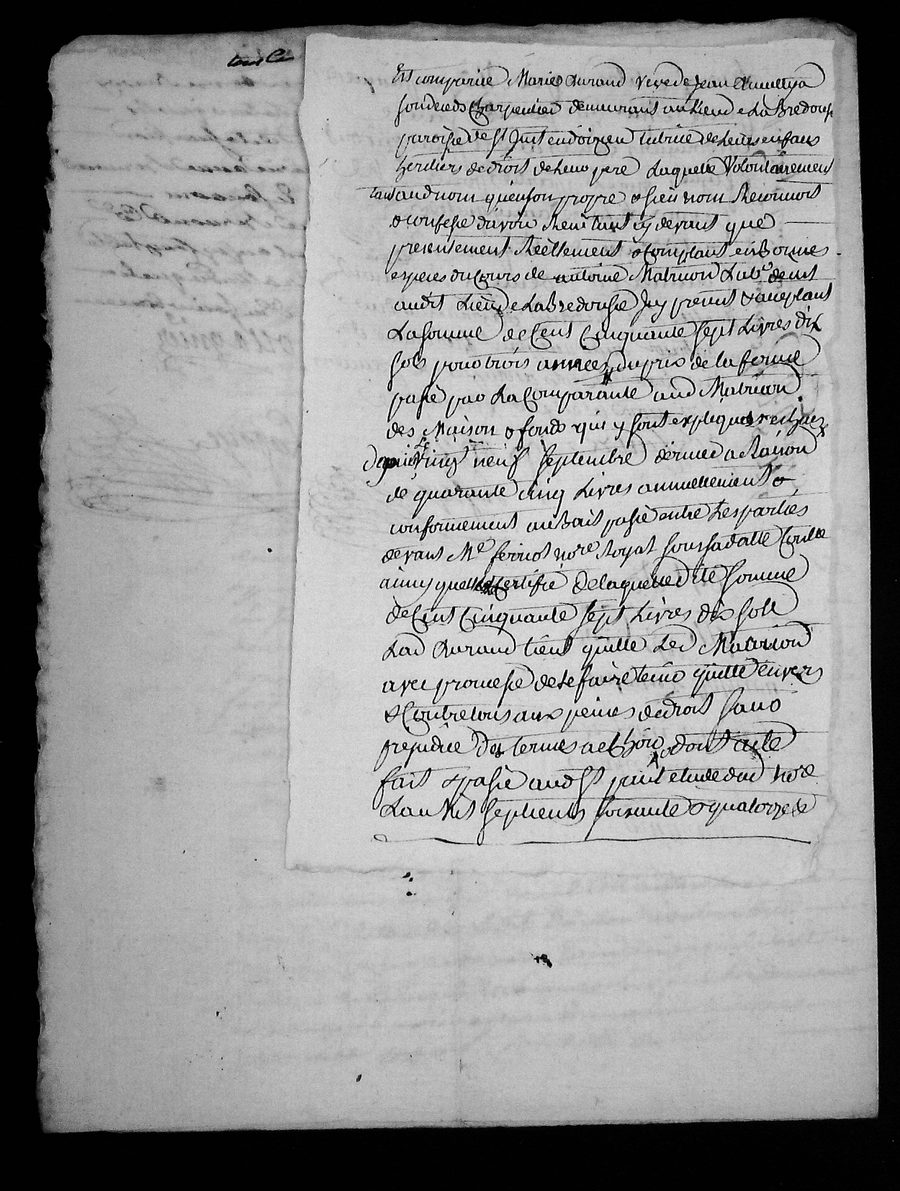 Est comparüe Marie durand veve de Jean
son decds Charpentier demeurant au Lieu de La Bredousse
paroisse de St Just en doizieu tutrice de Leurs enfans
heritiers de droit de Leur pere Laquelle Volontairement
tant aud nom qu'en son propre & privé nom Reconnoit
& confesse d'avoir Reçu tant cy devant que
presentement Reellement & Comptant en Bonnes
especes du Cours de antoine Matricon Labr demt
audit Lieu de La Bredousse Icy present & acceptant
La somme de Cent Cinquante Sept Livres dix
sols pour trois années du prix de la ferme
passé par La Comparante aud Matricon
des Maison & fonds qui y sont expliqués
depuis Le vingt neuf septembre dernier a Raison
de quarante Cinq Livres annuellement &
conformement au Bail passé entre Les parties
devant Me ferriot nore Royal sous sa datte Conlle
ainsy quelles certifié de laquelle dite somme
de Cent Cinquante Sept Livres dix sols
Lad durand tient quitte Led Matricon
avec promesse de le faire tenir quitte envers
& Contre tous aux peines de droit sauf
prejudice des termes a echoir dont acte
fait & passé aud St paul etude dud nore
L'an Mil sept cents soixante & quatorze &